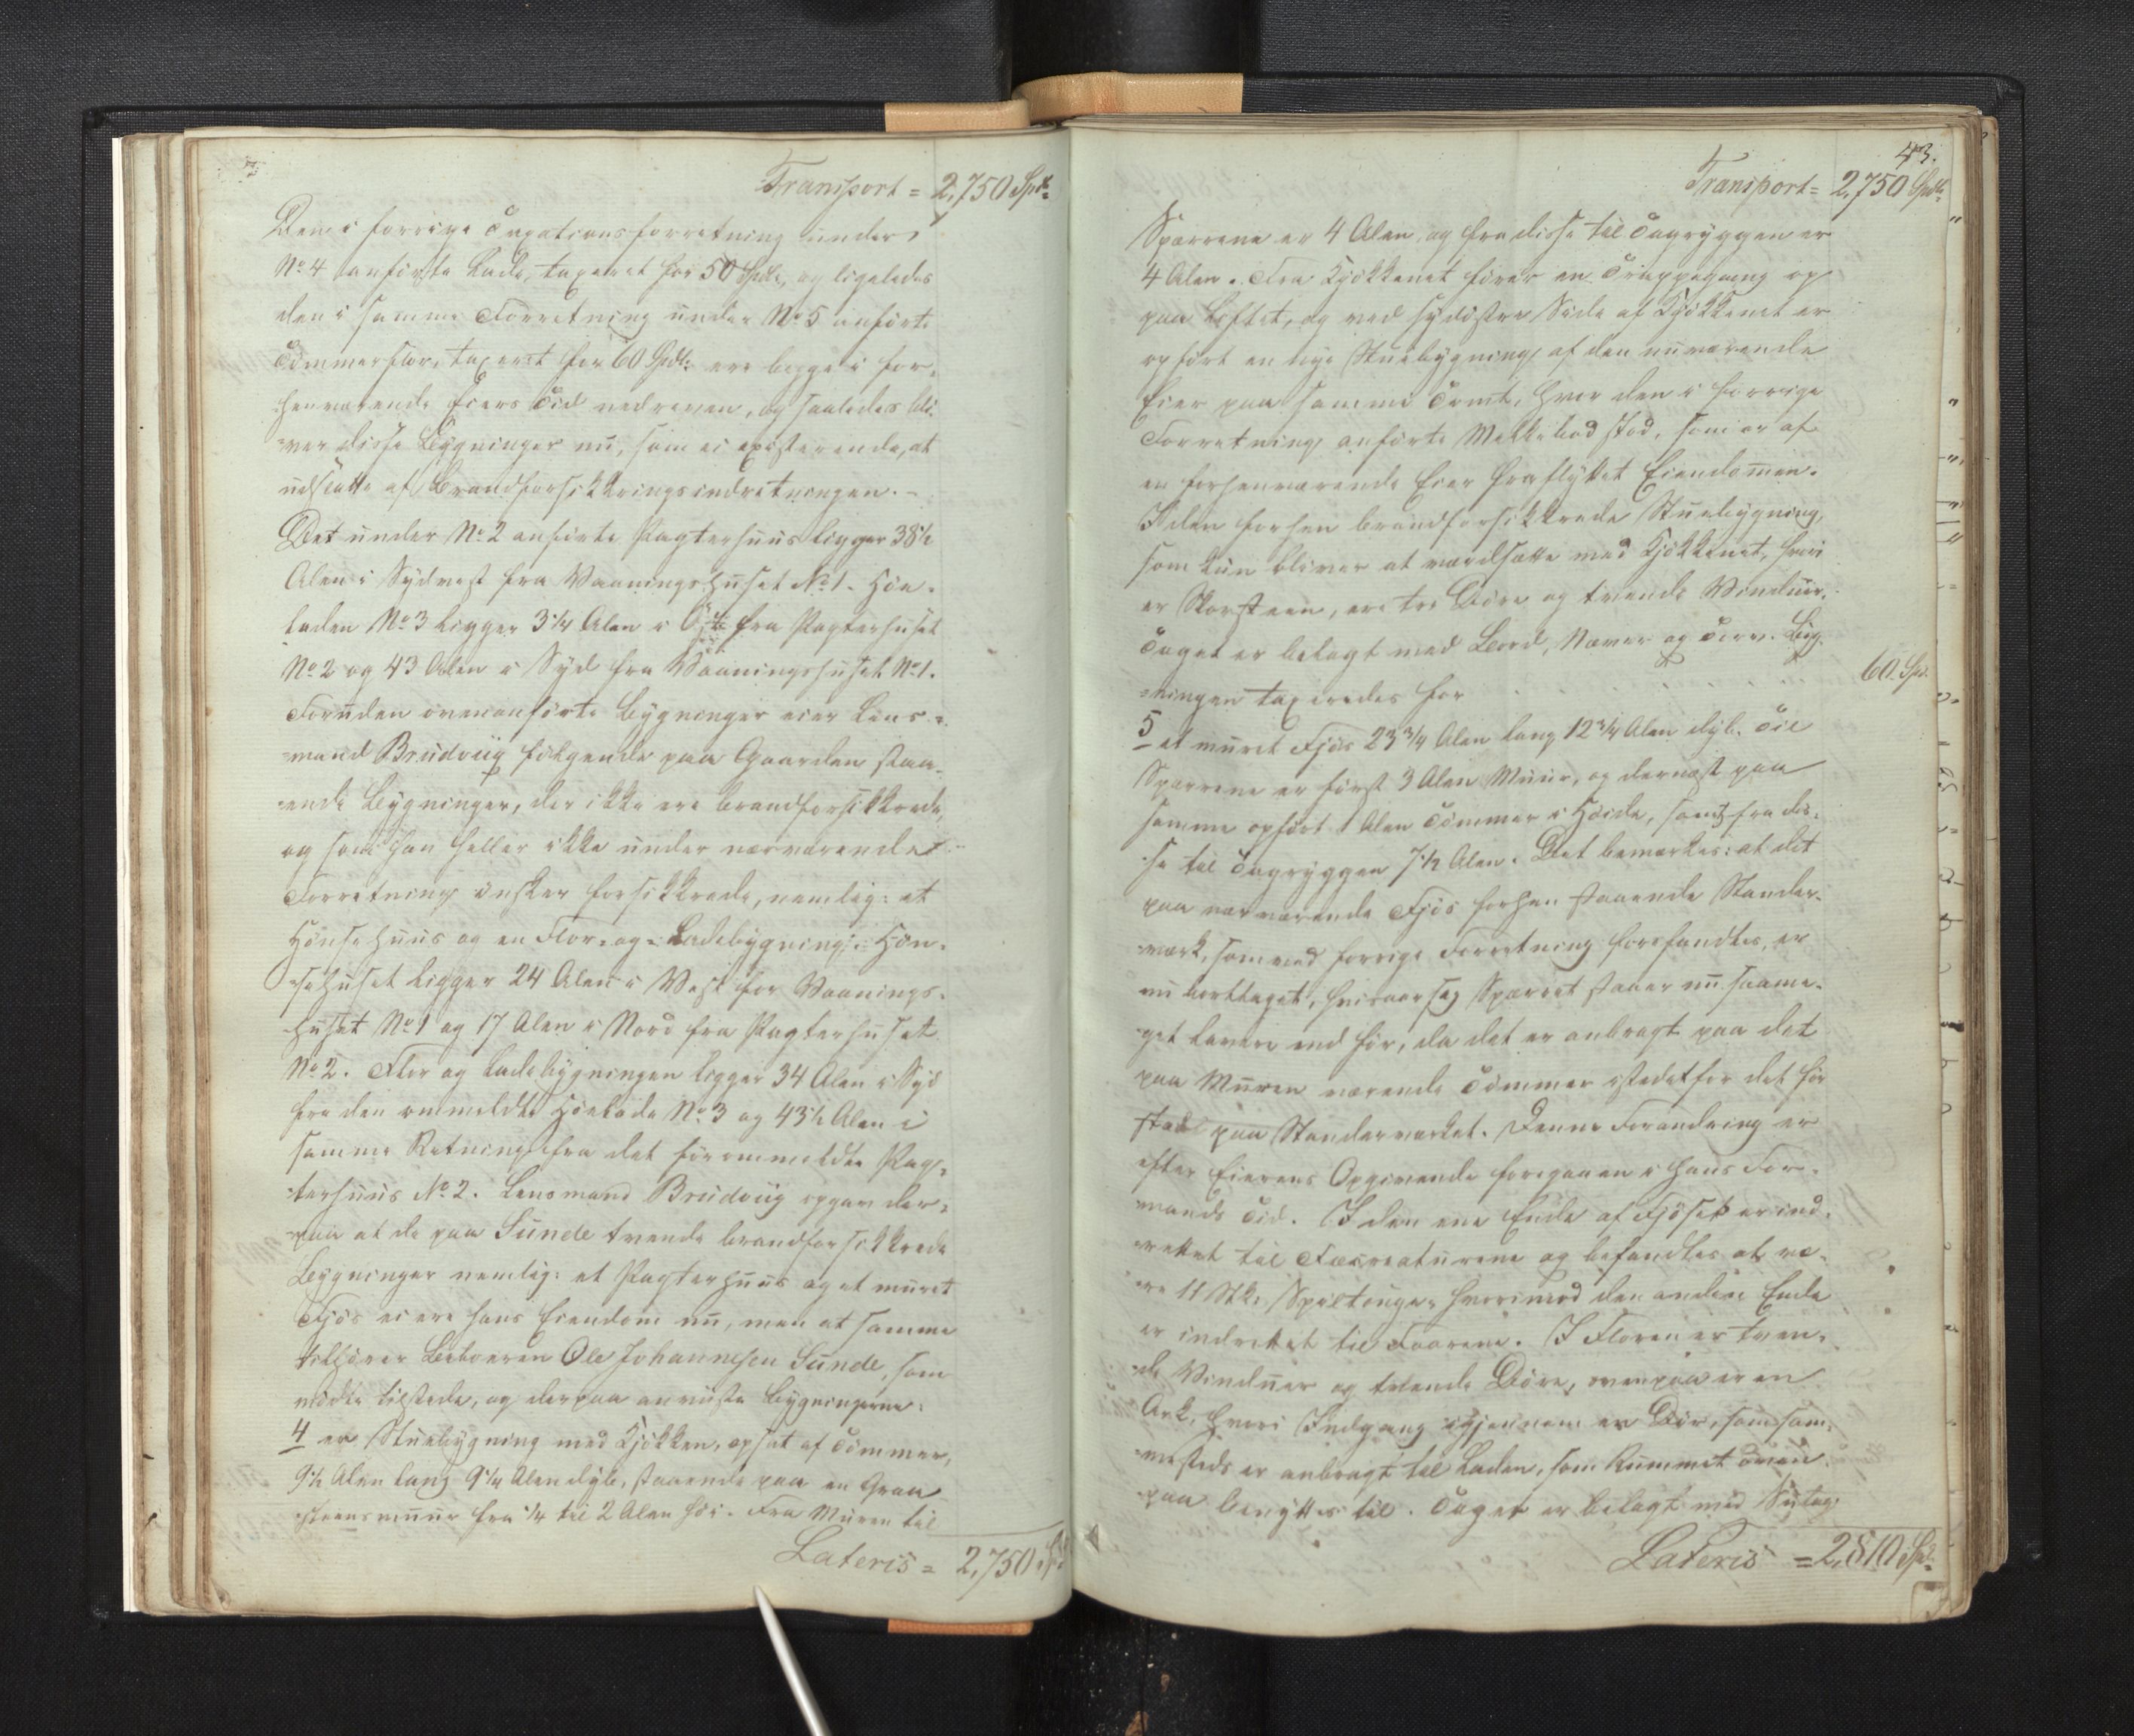 Transport = 2,750 Spd:
Den i forrige Taxationsforretning under
No 4 anförte Lade, taxeret for 50 Spdr, og ligeledes
den i samme Forretning under No 5 anförte
Tömmerflor, taxeret for 60 Spdr: ere begge i for-
henværende Eiers Tid nedreven, og saaledes bli-
-ver disse Bygninger nu, som ei existerende, at
udslette af Brandforsikkringsindretningen. -
Det under No 2 anförte Pagterhuus ligger 38½
Alen i Sydvest fra Vaaningshuset No 1. Höe-
laden No 3 ligger 3¼ Alen i Öst fra Pagterhuset
No 2 og 43 Alen i Syd fra Vaaningshuset No 1.
Foruden ovenanförte Bygninger eier Lens-
-mand Brudviig fölgende paa Gaarden staa-
-ende Bygninger, der ikke ere brandforsikkrede,
og som han heller ikke under nærværende
Forretning önsker forsikkrede, nemlig: et
Hönsehuus og en Flor- og Ladebygning: Hön-
-sehuset ligger 24 Alen i Vest for Vaanings-
-huset No 1 og 17 Alen i Nord fra Pagterhuset
No 2. Flor og Ladebygningen ligger 34 Alen i Syd
fra den ommeldte Hoelade No 3 og 43½ Alen i
samme Retning fra det förommeldte Pag-
-terhuus No 2. Lensmand Brudviig opgav der-
-paa at de paa Sunde tvende brandforsikkrede
Bygninger nemlig: et Pagterhuus og et muret
Fjös ei ere hans Eiendom nu, men at samme
tilhörer Beboeren Ole Johannesen Sunde, som
mödte tilstede, og derpaa anviste Bygningerne:
4 en Stuebygning med Kjökken, opsat af Tömmer,
9½ Alen lang 9¼ Alen dyb, staaende paa en Graa
-steensmuur fra ¼ til 2 Alen höi. Fra Muren til
Lateris = 2,750 Sp
43.
Transport = 2,750 Spdr
Sparrene er 4 Alen, og fra disse til Tagryggen er
4 Alen. Fra Kjökkenet förer en Trappegang op
paa Loftet, og ved sydöstre Side af Kjökkenet er
opfört en nye Stuebygning af den nuværende
Eier paa samme Tomt, hvor den i forrige
Forretning anförte Melkebod stod, som er af
en forhenværende Eier fraflyttet Eiendommen.
I den forhen brandforsikkrede Stuebygning,
som kun bliver at værdsætte med Kjökkenet, hvori
er Skorsteen, ere tre Döre og tvende Vinduer,
Taget er belagt med Bord, Næver og Torv. Byg-
-ningen taxeredes for . . . . . . . 60 Spd.
5 et muret Fjös 23¾ Alen lang 12¾ Alen dyb. Til
Sparrene er först 3 Alen Muur, og dernæst paa
samme opfört 1 Alen Tömmer i Höide, samt fra dis-
-se til Tagryggen 7½ Alen. Det bemærkes: at det
paa nærværende Fjös forhen staaende Stander-
-værk, som ved forrige Forretning forefandtes, er
nu borttaget, hvisaarsag Sparret staaer nu saame-
-get lavere end för, da det er anbragt paa det
paa Muren værende Tömmer istedetfor det för
stod paa Standerværket. Denne Forandring er
efter Eierens Opgivende foregaaen i hans For-
-mands Tid. I den ene Ende af Fjöset er ind-
-rettet til Fæcreaturene og befandtes at væ-
-re 11 Stk. Spiltouge, hvorimod den anden Ende
er indrettet til Faarene. I Floren er tven-
-de Vinduer og tvende Döre, ovenpaa er en
Ark, hvori Indgang igjennem en Dör, som sam-
-mesteds er anbragt til Laden, som Rummet oven-
-paa benyttes til. Taget er belagt med
Lateris = 2,810 Sp: